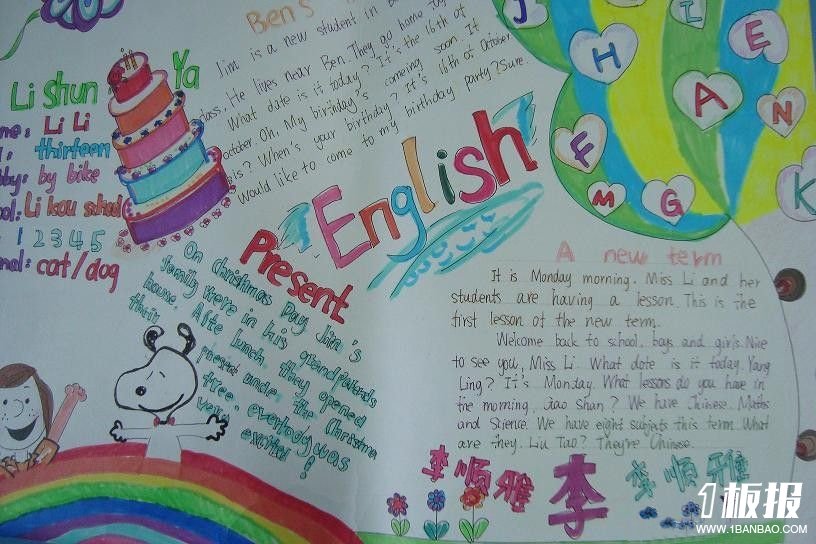 Li Shun Ya
Li Li
thirteen
by bike
Li kou school
1 2 3 4 5
cat/dog
Ben's
Jim is a new student in
He lives near Ben. They go home
What date is it today? It's the 16th of
October. Oh, My birthday's comeing soon. It
is? When's your birthday? It's 16th of October
Would like to come to my birthday party? Sure.
English
Present
On Christmas Day Jim's
family were in his grandparents
house. Afte lunch. they opened
their present unde. the Christma
tree. everbody was
very excited!
J
H
I
E
A
N
F
M
G
K
A new term
It is Monday morning. Miss Li and her
students are having a lesson. This is the
first lesson of the new term.
Welcome back to school, boys and girls. Nice
to see you, Miss Li. What date is it today. Yang
Ling? It's Monday. What lessons do you have in
the morning, Gao Shan? We have Chinese. Maths
and Science. We have eight subjects this term. What
are they. Liu Tao? They're Chinese.
李顺雅 李 李顺雅
1板报
WWW.1BANBAO.COM